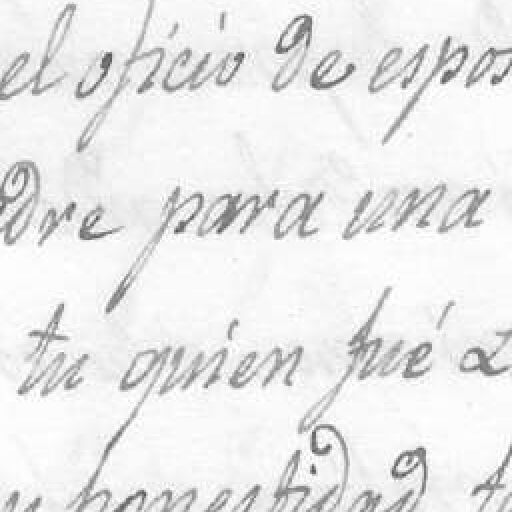 el oficio de espos
dre para una
tu quien fué
honestidad